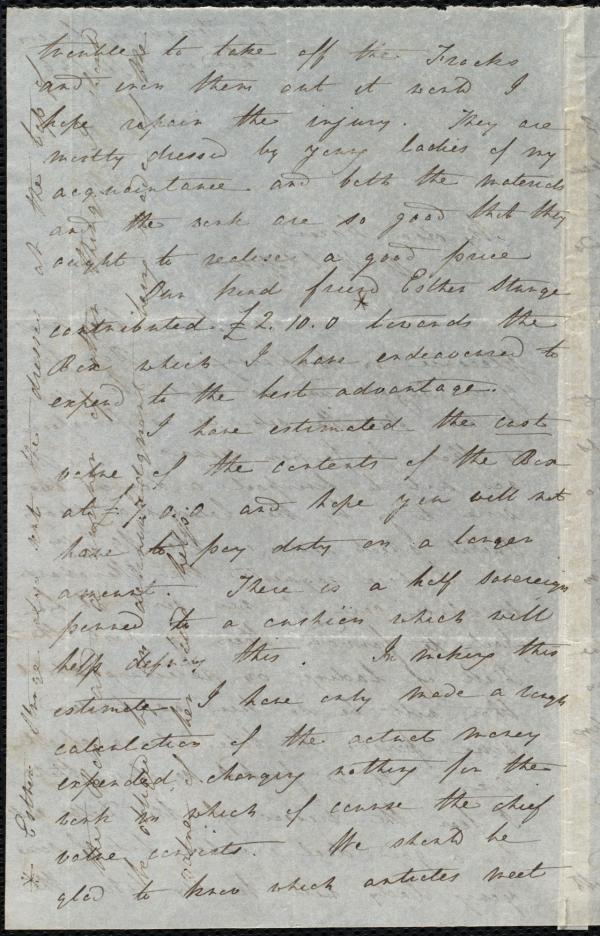 trouble to take off the Frocks
and iron them out it would I
hope repair the injury. They are
mostly dressed by young ladies of my
acquaintance and both the materials
and the work are so good that they
ought to realise a good price
Our kind friend Esther Sturge
contributed £2.10.0 towards the
Box which I have endeavoured to
expend to the best advantage.
I have estimated the cost
value of the contents of the Box
at £ .0.0 and hope you will not
have to pay duty on a larger
amount. There is a half sovereign
pinned to a cushion which will
help defray this. In making this
estimate I have only made a rough
calculation of the actual money
expended, charging nothing for the
work in which of course the chief
value consists. We should be
glad to know which articles meet
* Esther Sturge the dresses at the top
of her help